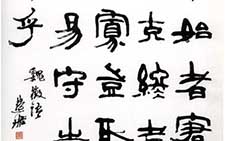 始者實
克終者
寡豈取
易守之
乎
魏徵語